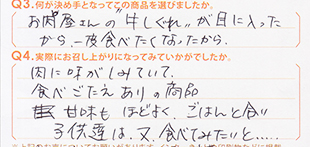 Q3.何が決め手となってこの商品を選びましたか。
お肉屋さんの"牛しぐれ"が目に入った
から、一度食べたくなったから。
Q4.実際にお召し上がりになってみていかがでしたか。
肉に味がしみていて、
食べごたえありの商品
甘味もほどよく ごはんと合い
子供達は、又、食べてみたいと……